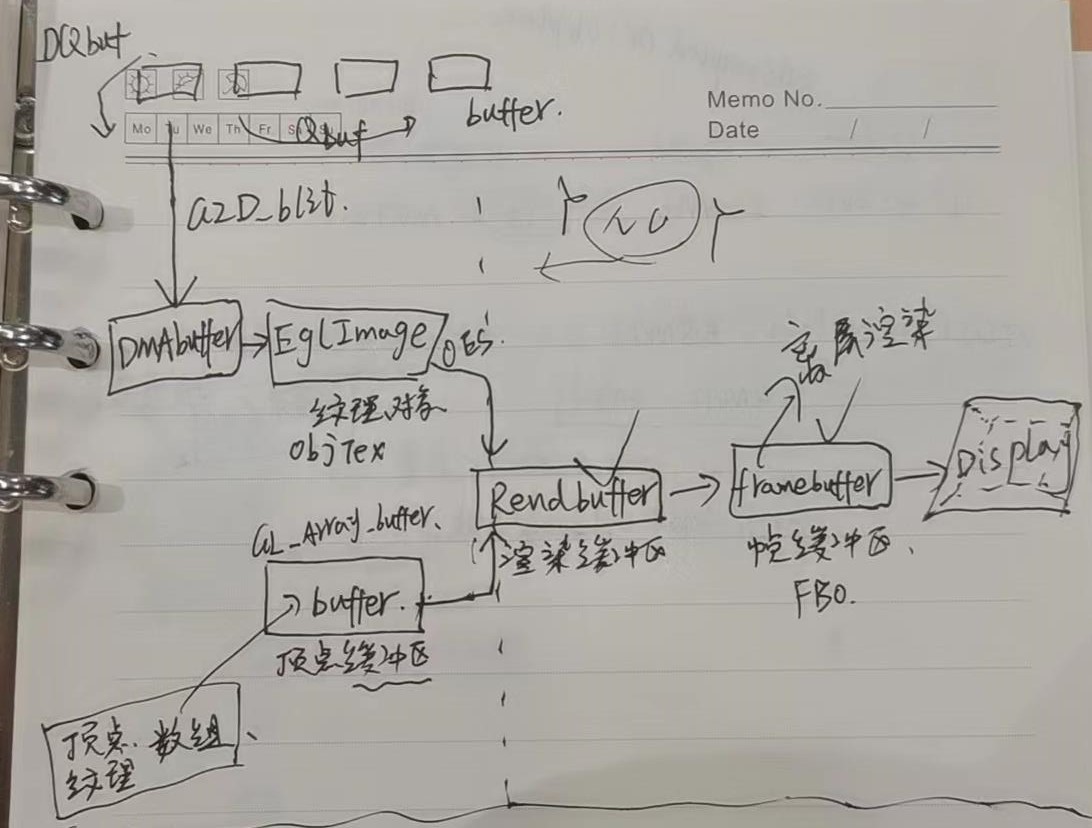 DQbuf
buffer.
Memo No.
Date / /
Mo Tu We Th Fr Sa Su
Qbuf
G2D_blit.
NO
DMAbuffer
EglImage
OES
离屏渲染
纹理对象
ObjTex
Display
Rendbuffer
framebuffer
GL_Array_buffer、
渲染缓冲区
帧缓冲区、
FBO.
buffer.
顶点缓冲区
顶点、数组、
纹理